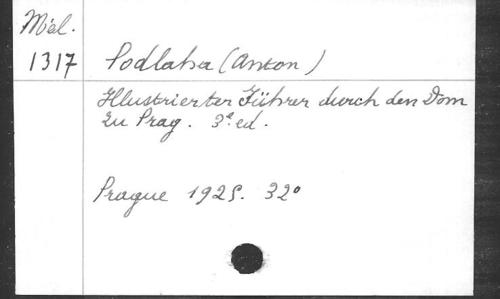 Mél.
1317 Podlaha (Anton)
Illustrierter Führer durch den Dom
zu Prag. 3e ed.
Prague 1925. 32°